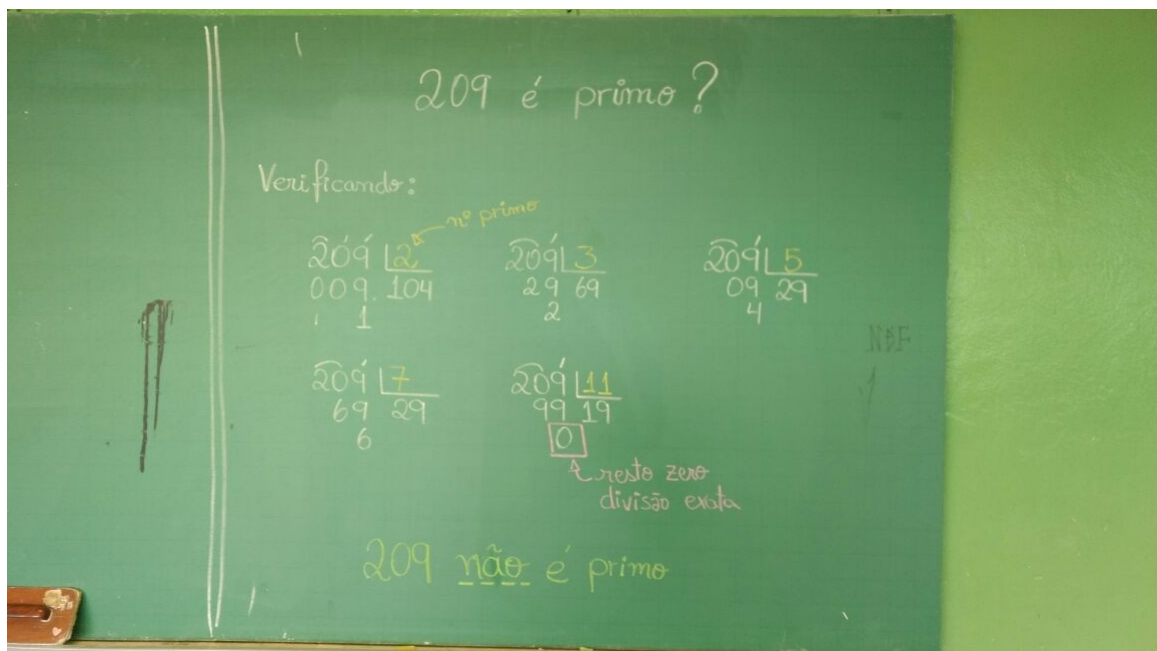 209 é primo?
Verificando:
nº primo
209 2
009 104
1
209 3
29 69
2
209 5
09 29
4
209 7
69 29
6
209 11
99 19
0
resto zero
divisão exata
209 não é primo